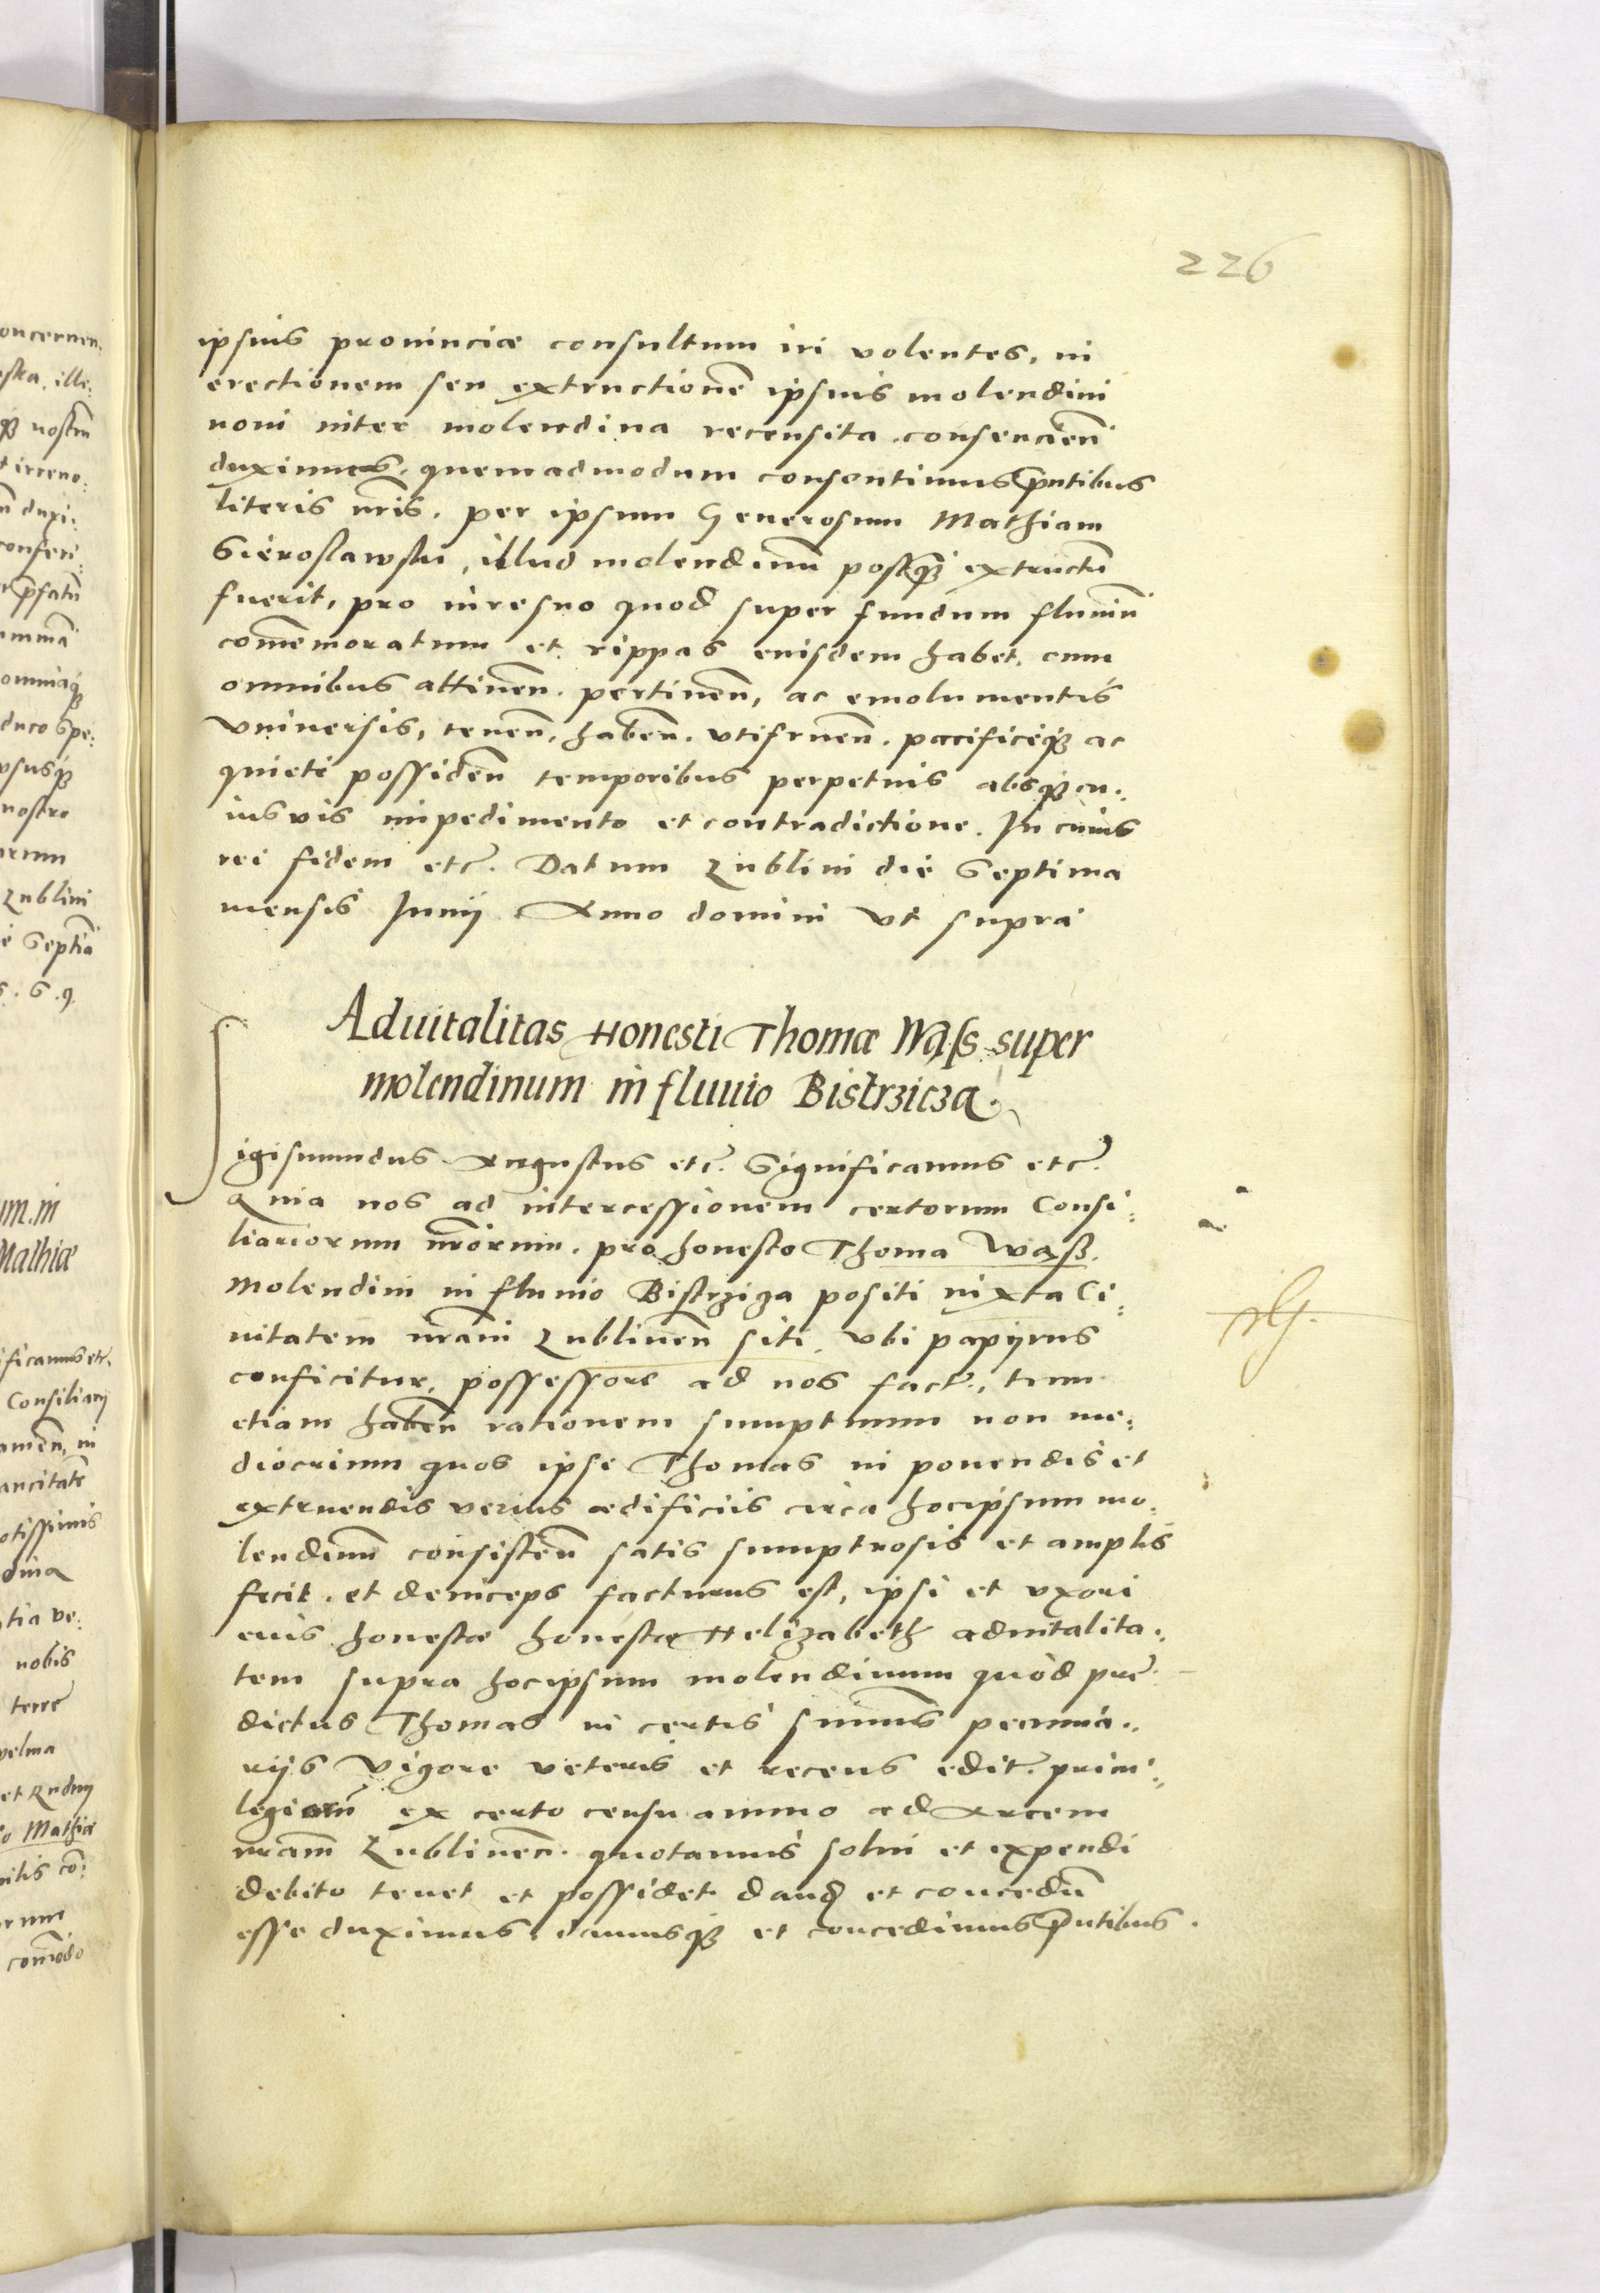 226
ipsius prouinciæ consultum iri volentes, in
erectionem seu extructionē ipsius molendini
noui inter molendina recensita consencien̄
duximus. quemadmodum consentimus p̄ntibus
literis nr̄is. per ipsum Generosum Mathiam
Sieroslawski, illud molendinū postq̄ʒ extructū
fuerit, pro iure suo quod super fundum fluuiū
com̄emoratum et rippas eiusdem habet, cum
omnibus attinen̄. pertinen̄, ac emolumentis
vniuersis, tenen̄, haben̄. vtifruen̄. pacificeqʒ ac
quiete possiden̄ temporibus perpetuis absqʒ cu.,
iusuis impedimento et contradictione. In cuius
rei fidem etc̄. Datum Lublini die Septima
mensis Junij Anno domini vt supra
Aduitalitas Honesti Thomæ Wass super
molendinum in fluuio Bistrzicza.
Sigismundus Augustus etc̄. Significamus etc̄.
Quia nos ad intercessionem certorum Consi:
liariorum nr̄orum. pro honesto Thoma Wass.
Molendini in fluuio Bistrziza positi iuxta Ci:
uitatem nr̄am Lublinen̄ siti, vbi papyrus
conficitur, possessore ad nos fact., tum
etiam haben̄ rationem sumptuum non me:
diocrium quos ipse Thomas in ponendis et
extruendis verius ædificiis circa hocipsum mo.
lendinū consisten̄ satis sumptuosis et amplis
fecit. et deinceps facturus est, ipsi et vxori
eius honestæ honestæ Helizabeth aduitalita.,
tem supra hocipsum molendinum quod præ
dictus Thomas in certis sum̄is pecunia.,
rijs vigore veteris et recens edit. priui:
legiorū ex certo censu annuo ad Arcem
nr̄am Lublinen̄. quotannis solui et expendi
debito tenet et possidet dand et conceden̄
esse duximus, damusqʒ et concedimus p̄ntibus.